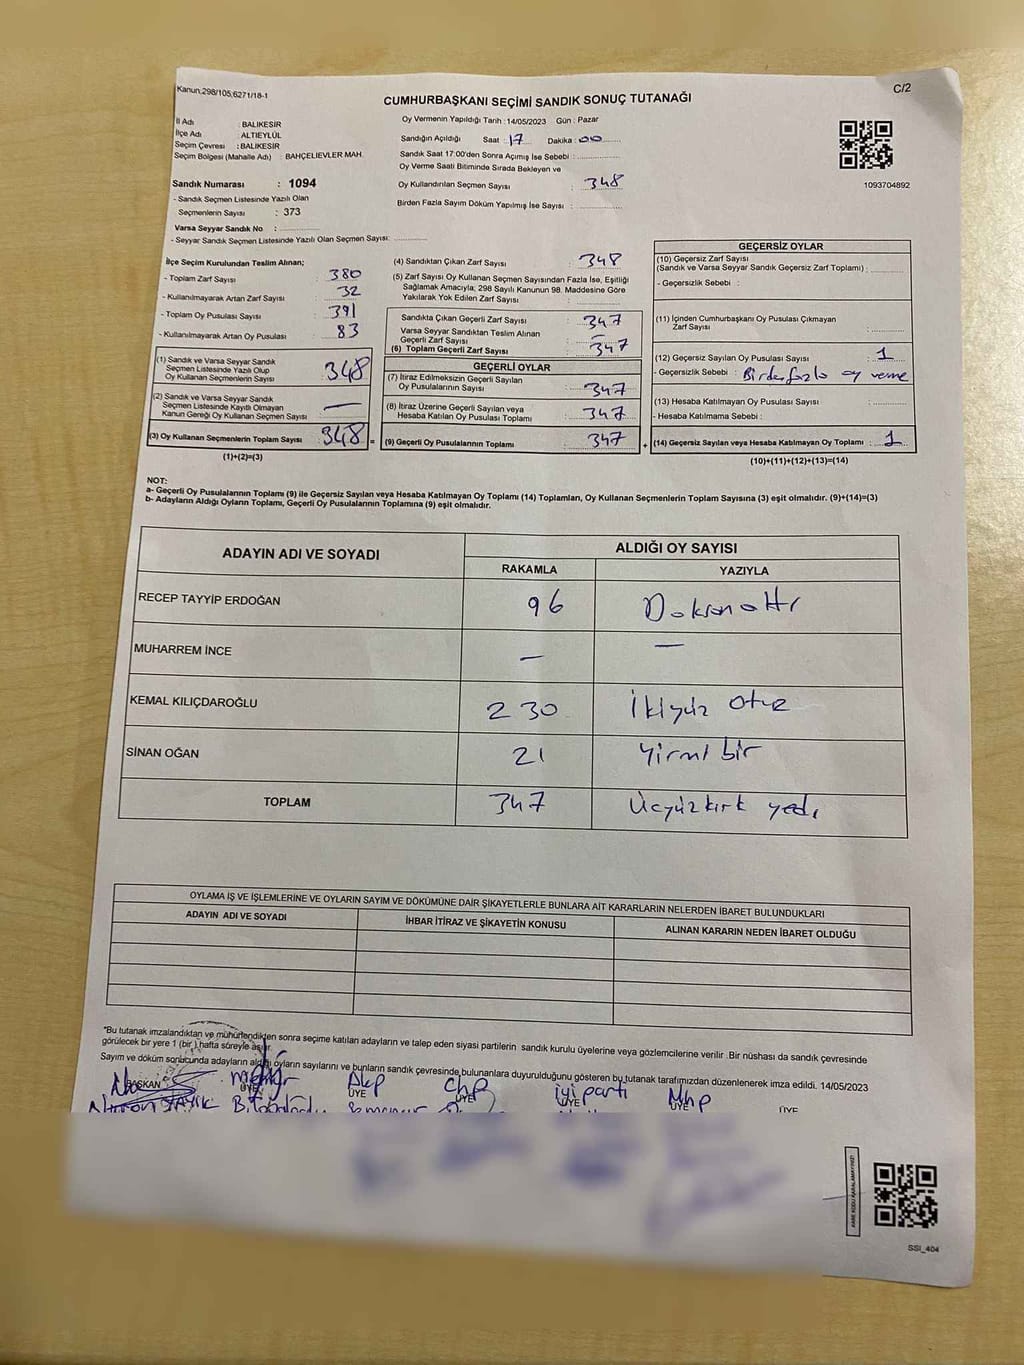 Kanun:298/105,6271/18-1
C/2
CUMHURBAŞKANI SEÇİMİ SANDIK SONUÇ TUTANAĞI
İl Adı : BALIKESİR
İlçe Adı : ALTIEYLÜL
Seçim Çevresi : BALIKESİR
Seçim Bölgesi (Mahalle Adı) : BAHÇELİEVLER MAH.
Sandık Numarası : 1094
- Sandık Seçmen Listesinde Yazılı Olan
Seçmenlerin Sayısı : 373
Varsa Seyyar Sandık No :
- Seyyar Sandık Seçmen Listesinde Yazılı Olan Seçmen Sayısı:
Oy Vermenin Yapıldığı Tarih :14/05/2023 Gün : Pazar
Sandığın Açıldığı Saat : 17 Dakika : 00
Sandık Saat 17:00'den Sonra Açımış İse Sebebi :
Oy Verme Saati Bitiminde Sırada Bekleyen ve
Oy Kullandırılan Seçmen Sayısı : 348
Birden Fazla Sayım Döküm Yapılmış İse Sayısı :
1093704892
İlçe Seçim Kurulundan Teslim Alınan;
- Toplam Zarf Sayısı : 380
- Kullanılmayarak Artan Zarf Sayısı : 32
- Toplam Oy Pusulası Sayısı : 391
- Kullanılmayarak Artan Oy Pusulası : 83
(1) Sandık ve Varsa Seyyar Sandık
Seçmen Listesinde Yazılı Olup
Oy Kullanan Seçmenlerin Sayısı : 348
(2) Sandık ve Varsa Seyyar Sandık
Seçmen Listesinde Kayıtlı Olmayan
Kanun Gereği Oy Kullanan Seçmen Sayısı : —
(3) Oy Kullanan Seçmenlerin Toplam Sayısı : 348 =
(1)+(2)=(3)
(4) Sandıktan Çıkan Zarf Sayısı : 348
(5) Zarf Sayısı Oy Kullanan Seçmen Sayısından Fazla İse, Eşitliği
Sağlamak Amacıyla; 298 Sayılı Kanunun 98. Maddesine Göre
Yakılarak Yok Edilen Zarf Sayısı :
Sandıkta Çıkan Geçerli Zarf Sayısı : 347
Varsa Seyyar Sandıktan Teslim Alınan
Geçerli Zarf Sayısı : —
(6) Toplam Geçerli Zarf Sayısı : 347
GEÇERLİ OYLAR
(7) İtiraz Edilmeksizin Geçerli Sayılan
Oy Pusulalarının Sayısı : 347
(8) İtiraz Üzerine Geçerli Sayılan veya
Hesaba Katılan Oy Pusulası Toplamı : 347
(9) Geçerli Oy Pusulalarının Toplamı : 347 +
GEÇERSİZ OYLAR
(10) Geçersiz Zarf Sayısı
(Sandık ve Varsa Seyyar Sandık Geçersiz Zarf Toplamı) :
- Geçersizlik Sebebi :
(11) İçinden Cumhurbaşkanı Oy Pusulası Çıkmayan
Zarf Sayısı :
(12) Geçersiz Sayılan Oy Pusulası Sayısı : 1
- Geçersizlik Sebebi : Birden fazla oy verme
(13) Hesaba Katılmayan Oy Pusulası Sayısı :
- Hesaba Katılmama Sebebi :
(14) Geçersiz Sayılan veya Hesaba Katılmayan Oy Toplamı : 1
(10)+(11)+(12)+(13)=(14)
NOT:
a- Geçerli Oy Pusulalarının Toplamı (9) ile Geçersiz Sayılan veya Hesaba Katılmayan Oy Toplamı (14) Toplamları, Oy Kullanan Seçmenlerin Toplam Sayısına (3) eşit olmalıdır. (9)+(14)=(3)
b- Adayların Aldığı Oyların Toplamı, Geçerli Oy Pusulalarının Toplamına (9) eşit olmalıdır.
ADAYIN ADI VE SOYADI ALDIĞI OY SAYISI
RAKAMLA YAZIYLA
RECEP TAYYİP ERDOĞAN 96 Doksan altı
MUHARREM İNCE — —
KEMAL KILIÇDAROĞLU 230 İkiyüz otuz
SİNAN OĞAN 21 Yirmi bir
TOPLAM 347 Üçyüzkırk yedi
OYLAMA İŞ VE İŞLEMLERİNE VE OYLARIN SAYIM VE DÖKÜMÜNE DAİR ŞİKAYETLERLE BUNLARA AİT KARARLARIN NELERDEN İBARET BULUNDUKLARI
ADAYIN ADI VE SOYADI İHBAR İTİRAZ VE ŞİKAYETİN KONUSU ALINAN KARARIN NEDEN İBARET OLDUĞU
*Bu tutanak imzalandıktan ve mühürlendikten sonra seçime katılan adayların ve talep eden siyasi partilerin sandık kurulu üyelerine veya gözlemcilerine verilir .Bir nüshası da sandık çevresinde
görülecek bir yere 1 (bir ) hafta süreyle asılır.
Sayım ve döküm sonucunda adayların aldığı oyların sayılarını ve bunların sandık çevresinde bulunanlara duyurulduğunu gösteren bu tutanak tarafımızdan düzenlenerek imza edildi. 14/05/2023
BAŞKAN ÜYE Akp ÜYE Chp ÜYE iyi parti ÜYE Mhp ÜYE ÜYE
KARE KODU KARALAMAYINIZ!
SSI_404